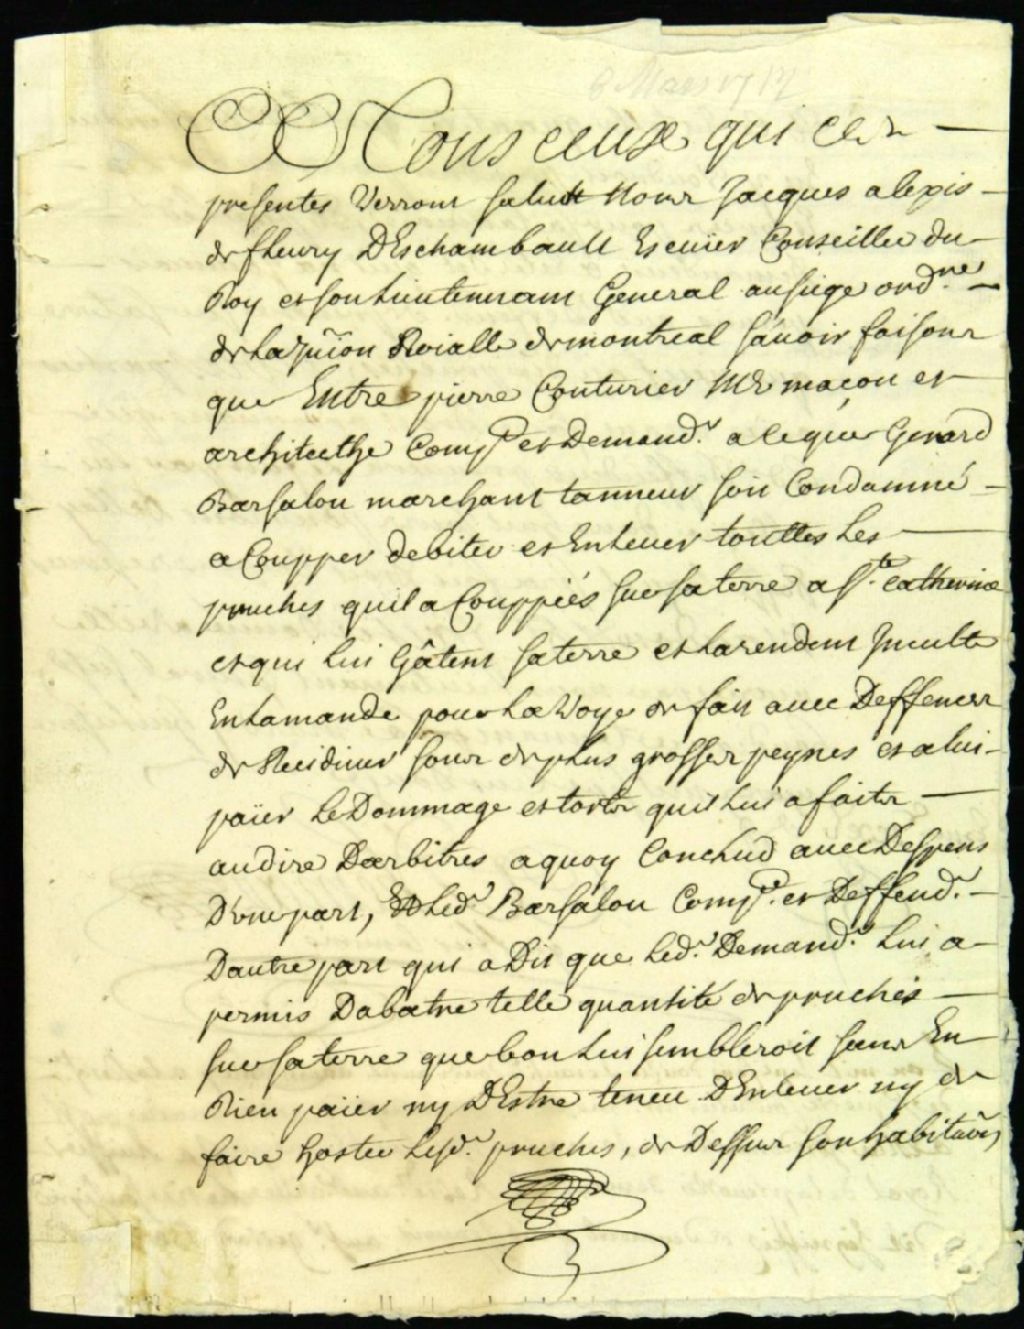 6 Mars 1717
A Tous ceux qui ces
presentes Verront salutt Nous Jacques alexis
de fleury DEschambault Escuier Conseiller du
Roy et son Lieutennant General au siege ord.re
de la Juõn Roialle de montreal sçavoir faisons
que Entre pierre Couturier Me macon et
architecthe Comp.t et Demand.r a ce que Gerard
Barsalou marchant tanneur soit Condamné
a Coupper debiter et Enlever touttes Les
pruches quil a Couppiés sur sa terre a S.te catherine
et qui Lui Gâtent sa terre et La rendent Jnculte
En Lamande pour La Voye de fait avec Deffences
de Recidiver sous de plus grosses peynes et a lui
païer Le Dommage et torts quil Lui a faits
au dire Darbitres a quoy Conclud avec Despens
D'une part, Et Led.r Barsalou Comp.t et Deffend.r
Dautre part qui a Dit que Led.r Demand.r Lui a
permis Dabatre telle quantité de pruches
sur sa terre que bon Lui sembleroit sans En
Rien païer ny DEstre teneu DEnlever ny de
faire hoster Lesd. pruches, de Dessus son habitãon